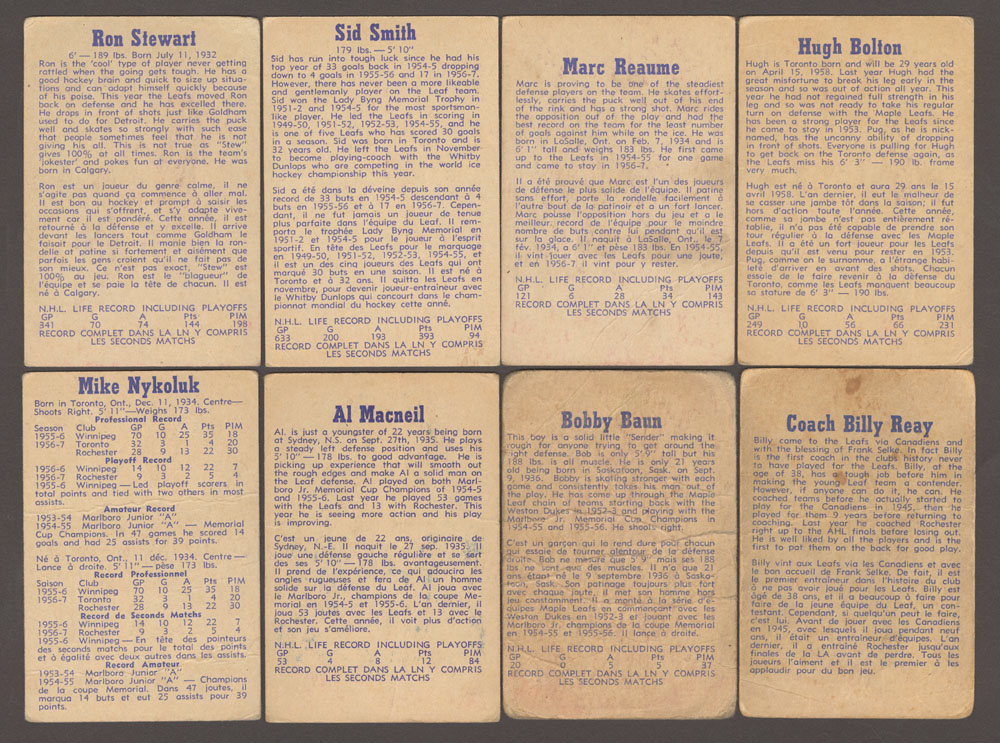 Ron Stewart
6' — 189 lbs. Born July 11, 1932
Ron is the 'cool' type of player never getting
rattled when the going gets tough. He has a
good hockey brain and quick to size up situa-
tions and can adapt himself quickly because
of his poise. This year the Leafs moved Ron
back on defense and he has excelled there.
He drops in front of shots just like Goldham
used to do for Detroit. He carries the puck
well and skates so strongly with such ease
that people sometimes feel that he is not
giving his all. This is not true as "Stew"
gives 100% at all times. Ron is the team's
'jokester' and pokes fun at everyone. He was
born in Calgary.
Ron est un joueur du genre calme, il ne
s'agite pas quand ça commence à aller mal.
Il est bon au hockey et prompt à saisir les
occasions qui s'offrent, et s'y adapte vive-
ment car il est pondéré. Cette année, il est
retourné à la défense et y excelle. Il arrive
devant les lancers tout comme Goldham le
faisait pour le Detroit. Il manie bien la ron-
delle et patine si fortement et aisément que
parfois les gens croient qu'il ne fait pas de
son mieux. Ce n'est pas exact, "Stew" est
100% au jeu. Ron est le "blagueur" de
l'équipe et se paie la tête de chacun. Il est
né à Calgary.
N.H.L. LIFE RECORD INCLUDING PLAYOFFS
GP G A Pts PIM
341 70 74 144 198
RECORD COMPLET DANS LA LN Y COMPRIS
LES SECONDS MATCHS
Sid Smith
179 lbs. — 5' 10"
Sid has run into tough luck since he had his
top year of 33 goals back in 1954-5 dropping
down to 4 goals in 1955-56 and 17 in 1956-7.
However, there has never been a more likeable
and gentlemanly player on the Leaf team.
Sid won the Lady Byng Memorial Trophy in
1951-2 and 1954-5 for the most sportsman-
like player. He led the Leafs in scoring in
1949-50, 1951-52, 1952-53, 1954-55, and he
is one of five Leafs who has scored 30 goals
in a season. Sid was born in Toronto and is
32 years old. He left the Leafs in November
to become playing-coach with the Whitby
Dunlops who are competing in the world ice
hockey championship this year.
Sid a été dans la déveine depuis son année
record de 33 buts en 1954-5 descendant à 4
buts en 1955-56 et à 17 en 1956-7. Cepen-
dant, il ne fut jamais un joueur de tenue
plus parfaite dans l'équipe du Leaf. Il rem-
porta le trophée Lady Byng Memorial en
1951-2 et 1954-5 pour le joueur à l'esprit
sportif. En tête des Leafs pour le marquage
en 1949-50, 1951-52, 1952-53, 1954-55, et
il est un des cinq joueurs des Leafs qui ont
marqué 30 buts en une saison. Il est né à
Toronto et à 32 ans. Il quitta les Leafs en
novembre, pour devenir joueur-entraîneur avec
le Whitby Dunlops qui concourt dans le cham-
pionnat mondial du hockey cette année.
N.H.L. LIFE RECORD INCLUDING PLAYOFFS
GP G A Pts PIM
633 200 193 393 94
RECORD COMPLET DANS LA LN Y COMPRIS
LES SECONDS MATCHS
Marc Reaume
Marc is proving to be one of the steadiest
defense players on the team. He skates effort-
lessly, carries the puck well out of his end
of the rink and has a strong shot. Marc rides
the opposition out of the play and had the
best record on the team for the least number
of goals against him while on the ice. He was
born in LaSalle, Ont. on Feb. 7, 1934 and is
6' 1" tall and weighs 183 lbs. He first came
up to the Leafs in 1954-55 for one game
and came to stay in 1956-7.
Il a été prouvé que Marc est l'un des joueurs
de défense le plus solide de l'équipe. Il patine
sans effort, porte la rondelle facilement à
l'autre bout de la patinoir et a un fort lancer.
Marc pousse l'opposition hors du jeu et a le
meilleur record de l'équipe pour le moindre
nombre de buts contre lui pendant qu'il est
sur la glace. Il naquit à LaSalle, Ont., le 7
fév. 1934, a 6' 1" et pèse 183 lbs. En 1954-55,
il vint jouer avec les Leafs pour une joute,
et en 1956-7, il vint pour y rester.
N.H.L. LIFE RECORD INCLUDING PLAYOFFS
GP G A Pts PIM
121 6 28 34 143
RECORD COMPLET DANS LA LN Y COMPRIS
LES SECONDS MATCHS
Hugh Bolton
Hugh is Toronto born and will be 29 years old
on April 15, 1958. Last year Hugh had the
great misfortune to break his leg early in the
season and so was out of action all year. This
year he had not regained full strength in his
leg and so was not ready to take his regular
turn on defense with the Maple Leafs. He
has been a strong player for the Leafs since
he came to stay in 1953. Pug, as he is nick-
named, has the uncanny ability of dropping
in front of shots. Everyone is pulling for Hugh
to get back on the Toronto defense again, as
the Leafs miss his 6' 3" — 190 lb. frame
very much.
Hugh est né à Toronto et aura 29 ans le 15
avril 1958. L'an dernier, il eut le malheur de
se casser une jambe tôt dans la saison; il fut
hors d'action toute l'année. Cette année,
comme sa jambe n'est pas entièrement ré-
tablie, il n'a pas été capable de prendre son
tour régulier à la défense avec les Maple
Leafs. Il a été un fort joueur pour les Leafs
depuis qu'il est venu pour rester en 1953.
Pug, comme on le surnomme, a l'étrange habi-
leté d'arriver en avant des shots. Chacun
essaie de le faire revenir à la défense du
Toronto, comme les Leafs manquent beaucoup
sa stature de 6' 3" — 190 lbs.
N.H.L. LIFE RECORD INCLUDING PLAYOFFS
GP G A Pts PIM
249 10 56 66 231
RECORD COMPLET DANS LA LN Y COMPRIS
LES SECONDS MATCHS
Mike Nykoluk
Born in Toronto, Ont., Dec. 11, 1934. Centre—
Shoots Right. 5' 11"—Weighs 173 lbs.
Professional Record
Season Club GP G A Pts PIM
1955-6 Winnipeg 70 10 25 35 18
1956-7 Toronto 32 3 1 4 20
Rochester 28 9 13 22 30
Playoff Record
1955-6 Winnipeg 14 10 12 22 7
1956-7 Rochester 9 3 2 5 4
1955-6 Winnipeg—Led playoff scorers in
total points and tied with two others in most
assists.
Amateur Record
1953-54 Marlboro Junior "A"
1954-55 Marlboro Junior "A" — Memorial
Cup Champions. In 47 games he scored 14
goals and had 25 assists for 39 points.
Né à Toronto, Ont., 11 déc. 1934. Centre —
Lance à droite. 5' 11" — pèse 173 lbs.
Record Professionnel
Saison Club GP G A Pts PIM
1955-6 Winnipeg 70 10 25 35 18
1956-7 Toronto 32 3 1 4 20
Rochester 28 9 13 22 30
Record de Seconds Matchs
1955-6 Winnipeg 14 10 12 22 7
1956-7 Rochester 9 3 2 5 4
1955-6 Winnipeg — En tête des pointeurs
des seconds matchs pour le total des points
et à égalité avec deux autres dans les assists.
Record Amateur
1953-54 Marlboro Junior "A"
1954-55 Marlboro Junior "A" — Champions
de la coupe Memorial. Dans 47 joutes, il
marqua 14 buts et eut 25 assists pour 39
points.
Al Macneil
Al, is just a youngster of 22 years being born at
Sydney, N.S. on Sept. 27th, 1935. He plays
a steady left defense position and uses his
5' 10"—178 lbs. to good advantage. He is
picking up experience that will smooth out
the rough edges and make Al a solid man on
the Leaf defense. Al played on both Marl-
boro Jr. Memorial Cup Champions of 1954-5
and 1955-6. Last year he played 53 games
with the Leafs and 13 with Rochester. This
year he is seeing more action and his play
is improving.
C'est un jeune de 22 ans, originaire de
Sydney, N.-E. Il naquit le 27 sep. 1935. Il
joue une défense gauche régulière et se sert
des ses 5' 10"—178 lbs. avantageusement.
Il prend de l'expérience, ce qui adoucira les
angles rugueuses et fera de Al un homme
solide sur la défense du Leaf. Al joua avec
le Marlboro jr., champions de la coupe Me-
morial en 1954-5 et 1955-6. L'an dernier, il
joua 53 joutes avec les Leafs et 13 avec le
Rochester. Cette année, il voit plus d'action
et son jeu s'améliore.
N.H.L. LIFE RECORD INCLUDING PLAYOFFS
GP G A Pts PIM
53 4 8 12 84
RECORD COMPLET DANS LA LN Y COMPRIS
LES SECONDS MATCHS
Bobby Baun
This boy is a solid little "Serider" making it
rough for anyone trying to get around the
right defense. Bob is only 5' 9" tall but his
188 lbs. is all muscle. He is only 21 years
old being born in Saskatoon, Sask. on Sept.
9, 1936. Bobby is skating stronger with each
game and consistently takes his man out of
the play. He has come up through the Maple
Leaf chain of teams starting back with the
Weston Dukes in 1952-3 and playing with the
Marlboro Jr. Memorial Cup Champions in
1954-55 and 1955-56. He shoots right.
C'est un garçon qui la rend dure pour chacun
qui essaie de tourner alentour de la défense
droite. Bob ne mesure que 5' 9" mais ses 188
lbs ne sont que des muscles. Il n'a que 21
ans étant né le 9 septembre 1936 à Saska-
toon, Sask. Son patinage toujours plus fort
avec chaque joute, il met son homme hors
jeu constamment. Il a monté à la série d'é-
quipes Maple Leafs en commençant avec les
Weston Dukes en 1952-3 et jouant avec les
Marlboro Jr. champions de la coupe Memorial
en 1954-55 et 1955-56. Il lance à droite.
N.H.L. LIFE RECORD INCLUDING PLAYOFFS
GP G A Pts PIM
20 0 5 5 37
RECORD COMPLET DANS LA LN Y COMPRIS
LES SECONDS MATCHS
Coach Billy Reay
Billy came to the Leafs via Canadiens and
with the blessing of Frank Selke. In fact Billy
is the first coach in the club's history never
to have played for the Leafs. Billy, at the
age of 38, has a tough job before him in
making the young Leaf team a contender.
However, if anyone can do it, he can. He
coached teams before he actually started to
play for the Canadiens in 1945, then he
played for them 9 years before returning to
coaching. Last year he coached Rochester
right up to the AHL finals before losing out.
He is well liked by all the players and is the
first to pat them on the back for good play.
Billy vint aux Leafs via les Canadiens et avec
le bon accueil de Frank Selke. De fait, il est
le premier entraîneur dans l'histoire du club
à ne pas avoir joué pour les Leafs. Billy est
âgé de 38 ans, et il a beaucoup à faire pour
faire de la jeune équipe du Leaf, un con-
testant. Cependant, si quelqu'un peut le faire,
c'est lui. Avant de jouer avec les Canadiens
en 1945, avec lesquels il joua pendant neuf
ans, il était un entraîneur d'équipes. L'an
dernier, il a entraîné Rochester jusqu'aux
finales de la LA avant de perdre. Tous les
joueurs l'aiment et il est le premier à les
applaudir pour du bon jeu.